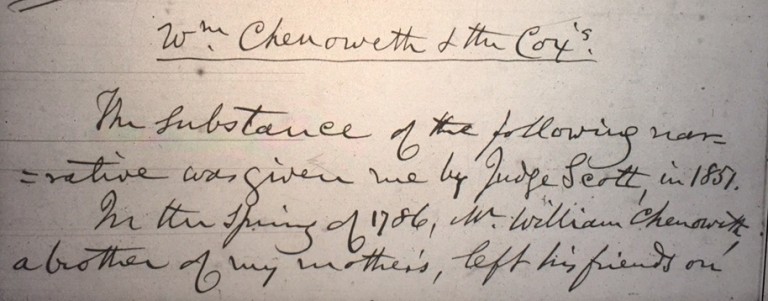 Wm. Chenoweth & the Cox's.
The substance of the following nar=
=rative was given me by Judge Scott, in 1851.
In the Spring of 1786, Mr. William Chenoweth,
a brother of my mother's, left his friends on